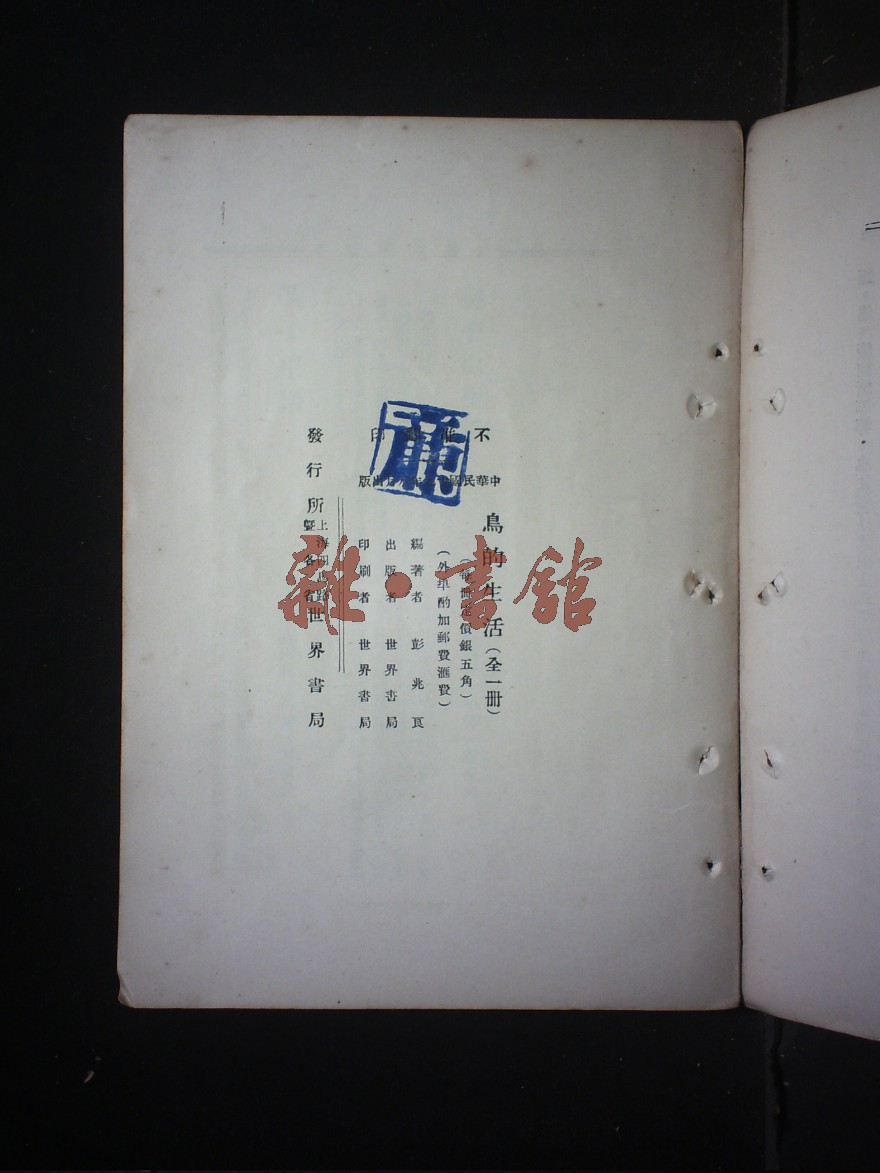 不准翻印
中華民國 月出版
鳥的生活(全一册)
(每册定價銀五角)
(外埠酌加郵費滙費)
編著者 彭兆良
出版者 世界書局
印刷者 世界書局
發行所 上海四馬路暨各省 世界書局
雜·書館